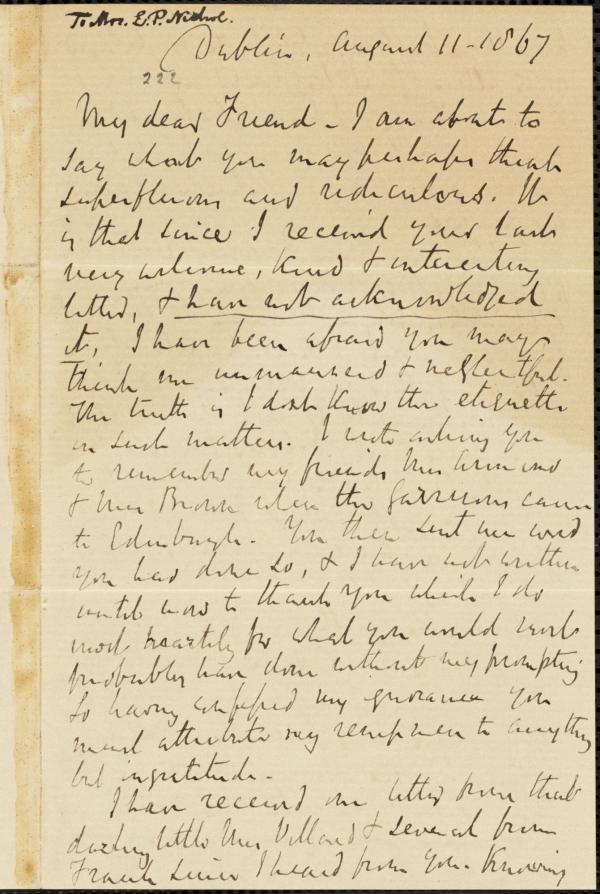 To Mrs. E. P. Nichol.
Dublin, August 11 - 1867
222
My dear Friend - I am about to
say what you may perhaps think
superfluous and ridiculous. It
is that since I received your last
very welcome, kind & interesting
letter, & have not acknowledged
it, I have been afraid you may
think me unmannered & neglectful.
The truth is I don't know the etiquette
in such matters. I wrote asking you
to remember my friends Miss
& Miss Brown when the Garrisons came
to Edinburgh. You then sent me word
you had done so, & I have not written
until now to thank you which I do
most heartily for what you would most
probably have done without my prompting
So having confessed my ignorance you
must attribute my remissness to anything
but ingratitude.
I have received one letter from that
darling little Mrs Villard & several from
Frank since I heard from you. Knowing